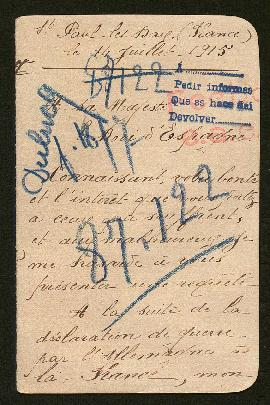 St Paul les Dax, (France)
le 14 Juillet 1915
87122
A
Pedir informes
Que se hace aci
Devolver
A sa Majesté
le Roi d'Espagne
Connaissant votre bonté
et l'intérêt que vous
à ceux qui souffrent,
et aux malheureux, je
me hasarde à vous
présenter cette requête
87.122
A la suite de la
déclaration de guerre
par l'Allemagne à
la France, mon